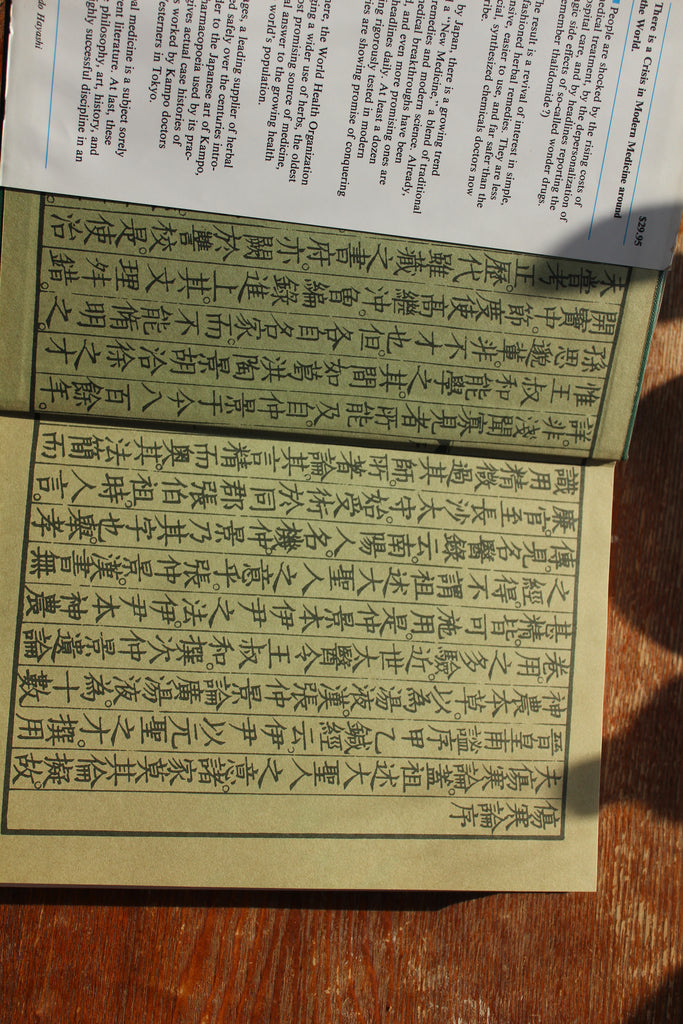 There is a Crisis in Modern Medicine around
the World. $29.95
People are shocked by the rising costs of
medical treatment, by the depersonalization of
hospital care, and by headlines reporting the
tragic side effects of so-called wonder drugs.
(Remember thalidomide?)
The result is a revival of interest in simple,
fashioned herbal remedies. They are less
easier to use, and far safer than the
synthesized chemicals doctors now
by Japan, there is a growing trend
a "New Medicine," a blend of traditional
remedies and modern science. Already,
medical breakthroughs have been
and even more promising ones are
headlines daily. At least a dozen
being rigorously tested in modern
are showing promise of conquering
the World Health Organization
a wider use of herbs, the oldest
most promising source of medicine,
answer to the growing health
world's population.
a leading supplier of herbal
safely over the centuries
to the Japanese art of Kampo,
pharmacopoeia used by its
gives actual case histories of
worked by Kampo doctors
Westerners in Tokyo.
medicine is a subject sorely
literature. At last, these
philosophy, art, history, and
highly successful discipline in an
Hayashi
傷寒論序
夫傷寒論。蓋祖述大聖人之意。諸家莫其倫擬。故
晉皇甫謐序甲乙鍼經云。伊尹以元聖之才。撰用
神農本草。以為湯液。漢張仲景論廣湯液。為十數
卷。用之多驗。近世太醫令王叔和。撰次仲景遺論
甚精。皆可施用。是仲景本伊尹之法。伊尹本神農
之經。得不謂祖述大聖人之意乎。張仲景漢書無
傳。見名醫錄云。南陽人。名機。仲景乃其字也。舉孝
廉。官至長沙太守。始受術於同郡張伯祖。時人言。
識用精微過其師。所著論。其言精而奧。其法簡而
詳。非淺聞寡見者所能及。自仲景于今八百餘年。
惟王叔和能學之。其間如葛洪陶景胡洽徐之才
孫思邈輩。非不才也。但各自名家。而不能脩明之。
開寶中。節度使高繼沖。曾編錄進上。其文理舛錯。
未嘗考正。歷代雖藏之書府。亦闕於讎校。是使治